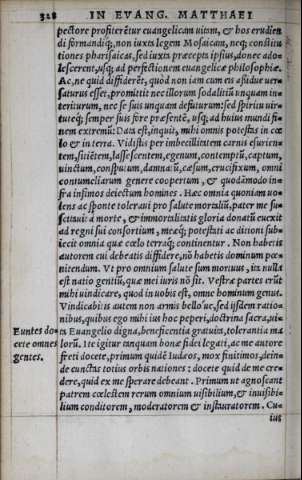 328 IN EVANG. MATTHAEI
pectore profiterétur euangelicam uitam, & hos erudien
di formandiq́;, non iuxta legem Mosaicam, neq; constitu
tiones pharisaicas, sed iuxta præcepta ipsius, donec ado-
lescerent, usq; ad perfectionem euangelicæ philosophiæ.
Ac, ne quid diffiderét, quòd non iam cum eis assidue uer-
saturus esset, promittit nec illorum sodalitiũ unquam in-
teriturum, nec se suis unquam defuturum: sed spiritu uir-
tuteq́; semper suis fore præsentē, usq; ad huius mundi fi-
nem extremũ: Data est, inquit, mihi omnis potestas in cœ
lo & in terra. Vidistis per imbecillitatem carnis esurien-
tem, sitiētem, lassescentem, egenum, contemptũ, captum,
uinctum, consputum, damnatũ, cæsum, crucifixum, omni
contumeliarum genere coopertum, & quodãmodo in-
fra infimos deiectum homines. Hæc omnia quoniam uo-
lens ac sponte toleraui pro salute mortaliũ, pater me su-
scitauit à morte, & immortalitatis gloria donatũ euexit
ad regni sui consortium, meæq́; potestati ac ditioni sub-
iecit omnia quæ cœlo terraq́; continentur. Non habetis
autorem cui debeatis diffidere, nõ habetis dominum pœ-
nitendum. Vt pro omnium salute sum mortuus, ita nulla
est natio gentiũ, quæ mei iuris nõ sit. Vestræ partes erũt
mihi uindicare, quod in uobis est, omne hominum genus.
Vindicabitis autem non armis bello'ue, sed iisdem ratio-
nibus, quibus ego mihi ius hoc peperi, doctrina sacra, ui-
Euntes do- ta Euangelio digna, beneficentia gratuita, tolerantia ma
cete omnes lorũ. Ite igitur tanquam bonæ fidei legati, ac me autore
gentes. freti docete, primum quidē Iudæos, mox finitimos, dein-
de cunctas totius orbis nationes: docete quid de me cre-
dere, quid ex me sperare debeant. Primum ut agnoscant
patrem cœlestem rerum omnium uisibilium, & inuisibi-
lium conditorem, moderatorem & instauratorem. Cu-
ius